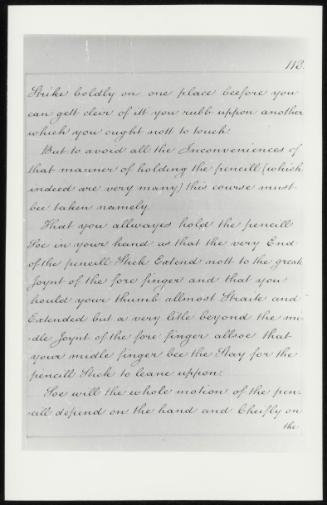 112.
Strike boldly on one place beefore you
can gett cleer of itt you rubb uppon another
which you ought nott to touch.
But to avoid all the Inconveniences of
that manner of holding the pencill (which
indeed are very many) this course must
bee taken namely
That you allwayes hold the pencill
Soe in your hand as that the very End
of the pencill Stick Extend nott to the great
Joynt of the fore finger and that you
hould your thumb allmost Straite and
Extended but a very litle beyond the mi-
dle Joynt of the fore finger allsoe that
your midle finger bee the Stay for the
pencill Stick to leane uppon.
Soe will the whole motion of the pen-
cill depend on the hand and Cheifly on
the